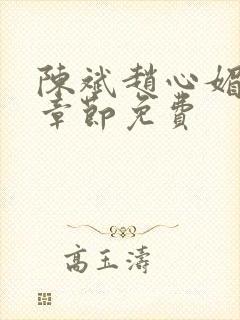 陳斌趙心媚
章節免費
高玉濤